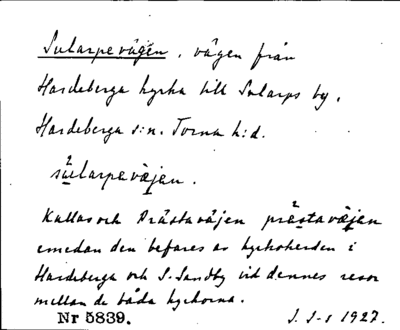 Sularpevägen, vägen från
Hardeberga kyrka till Sularps by,
Hardeberga s:n. Torna h:d.
sularpevajen.
Kallas och Prästavajen prästavajen
emedan den befares av kyrkoherden i
Hardeberga och S. Sandby vid dennes resor
mellan de båda kyrkorna.
Nr 5839. J. S-s 1927.